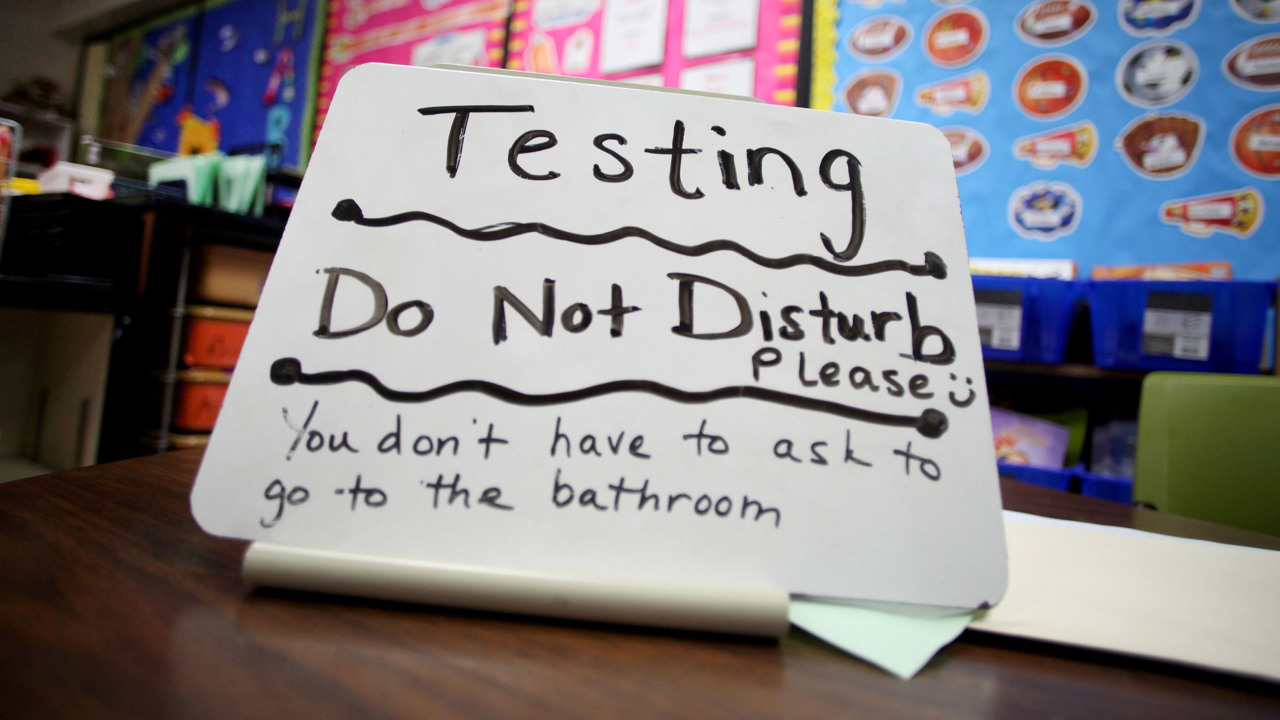 Testing
Do Not Disturb
Please :)
You don't have to ask to
go to the bathroom